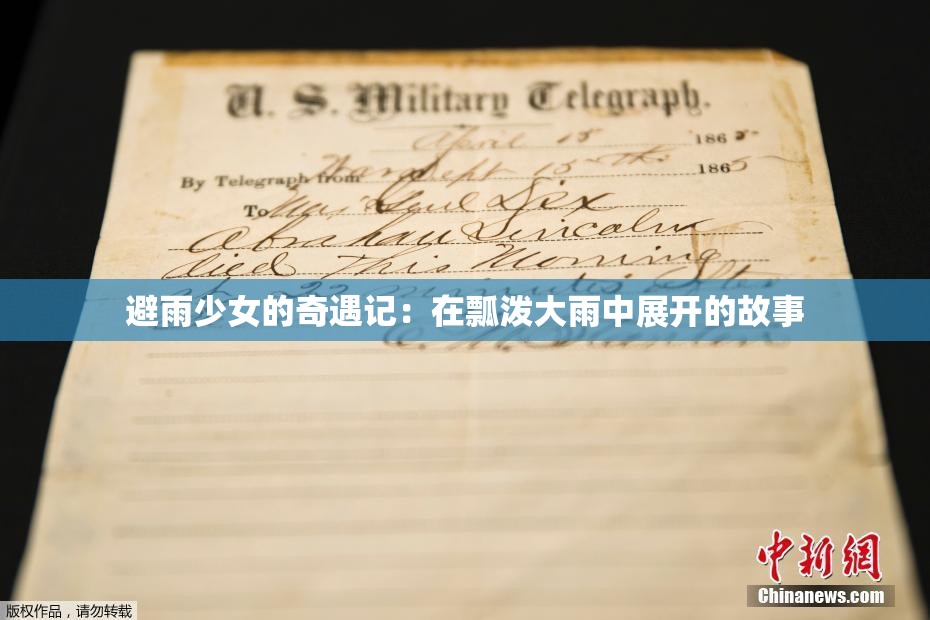 U. S. Military Telegraph.
April 15 1865
By Telegraph from War Dept 15th 1865
To Maj Genl Dix
Abraham Lincoln
died This Morning
at 22 minutes after
避雨少女的奇遇记：在瓢泼大雨中展开的故事
中新网
Chinanews.com
版权作品，请勿转载